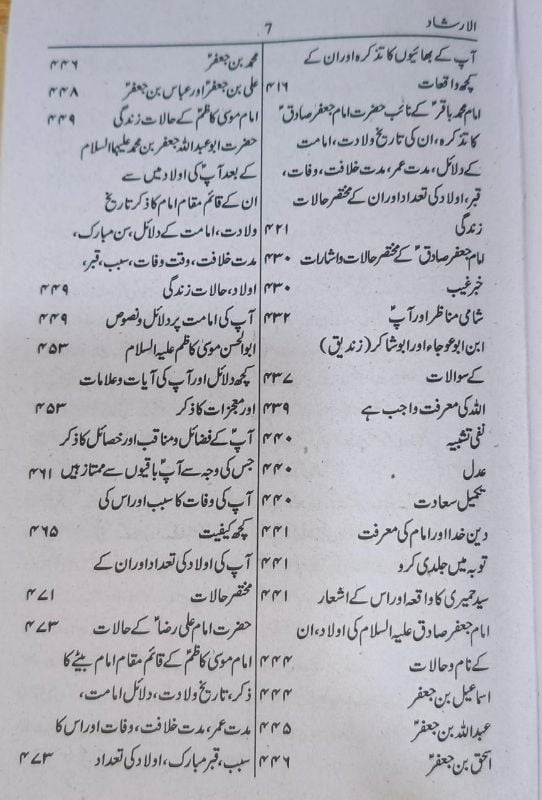 الارشاد
7
آپ کے بھائیوں کا تذکرہ اور ان کے
کچھ واقعات ۴۱۶
امام محمد باقرؑ کے نائب حضرت امام جعفر صادقؑ
کا تذکرہ، ان کی تاریخ ولادت، امامت
کے دلائل، مدت عمر، مدت خلافت، وفات،
قبر، اولاد کی تعداد اور ان کے مختصر حالات
زندگی ۴۲۱
امام جعفر صادقؑ کے مختصر حالات واشارات ۴۳۰
خبر غیب ۴۳۰
شامی مناظر اور آپؑ ۴۳۲
ابن ابو عوجاء اور ابو شاکر (زندیق)
کے سوالات ۴۳۷
اللہ کی معرفت واجب ہے ۴۳۹
نفی تشبیہ ۴۴۰
عدل ۴۴۰
تکمیل سعادت ۴۴۰
دین خدا اور امام کی معرفت ۴۴۱
توبہ میں جلدی کرو ۴۴۱
سید حمیری کا واقعہ اور اس کے اشعار ۴۴۱
امام جعفر صادق علیہ السلام کی اولاد، ان
کے نام و حالات ۴۴۴
اسماعیل بن جعفر ۴۴۴
عبداللہ بن جعفرؑ ۴۴۵
اسحٰق بن جعفرؑ ۴۴۶
محمد بن جعفرؑ ۴۴۶
علی بن جعفرؑ اور عباس بن جعفرؑ ۴۴۸
امام موسیٰ کاظمؑ کے حالات زندگی ۴۴۹
حضرت ابو عبداللہ جعفر بن محمد علیہما السلام
کے بعد آپؑ کی اولاد میں سے
ان کے قائم مقام امام کا ذکر تاریخ
ولادت، امامت کے دلائل، سن مبارک،
مدت خلافت، وقت وفات، سبب، قبر،
اولاد، حالات زندگی ۴۴۹
آپ کی امامت پر دلائل و نصوص ۴۴۹
ابوالحسن موسیٰ کاظم علیہ السلام ۴۵۳
کچھ دلائل اور آپ کی آیات و علامات
اور معجزات کا ذکر ۴۵۳
آپؑ کے فضائل و مناقب اور خصائل کا ذکر
جس کی وجہ سے آپؑ باقیوں سے ممتاز ہیں ۴۶۱
آپ کی وفات کا سبب اور اس کی
کچھ کیفیت ۴۶۵
آپ کی اولاد کی تعداد اور ان کے
مختصر حالات ۴۷۱
حضرت امام علی رضاؑ کے حالات ۴۷۳
امام موسیٰ کاظمؑ کے قائم مقام امام بیٹے کا
ذکر، تاریخ ولادت، دلائل امامت،
مدت عمر، مدت خلافت، وفات اور اس کا
سبب، قبر مبارک، اولاد کی تعداد ۴۷۳